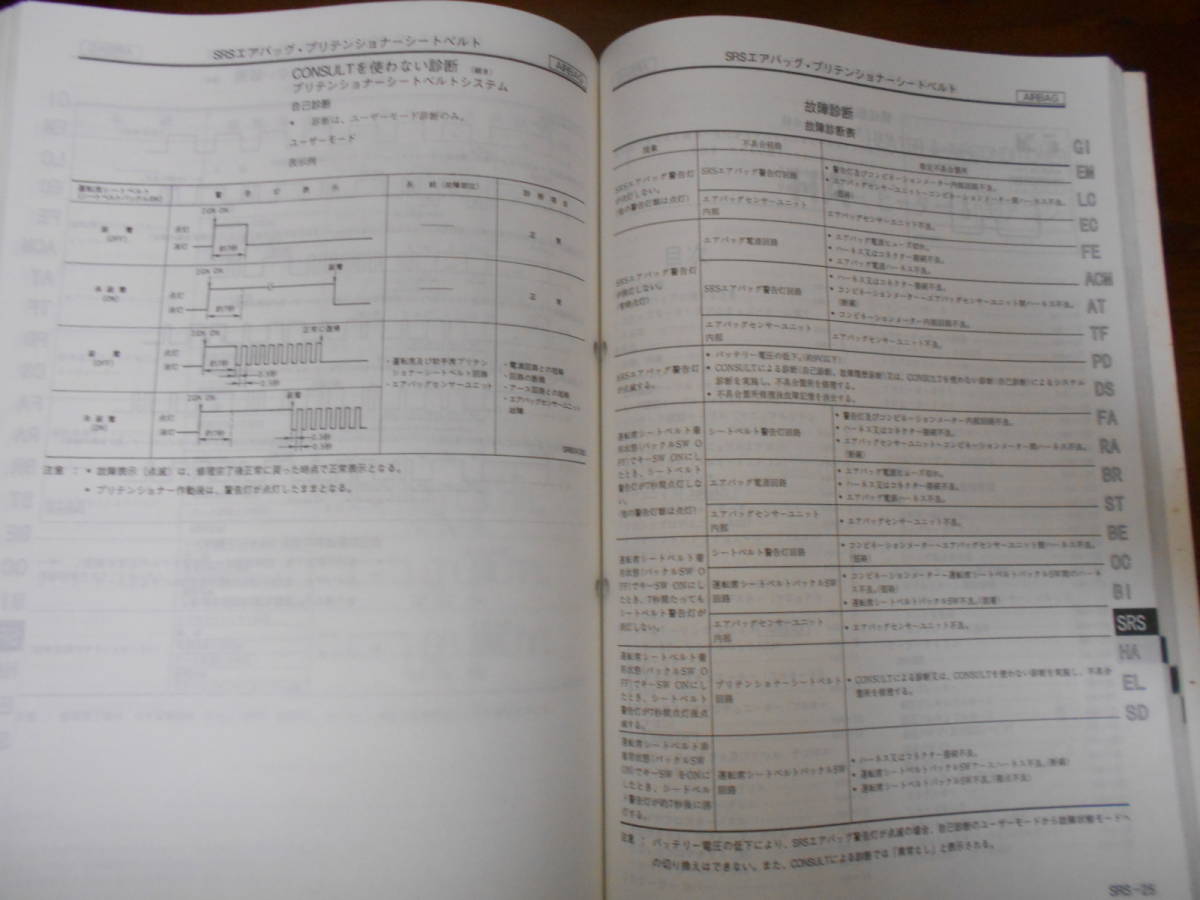 SRSエアバッグ・プリテンショナーシートベルト
AIRBAG
CONSULTを使わない診断 (続き)
プリテンショナーシートベルトシステム
自己診断
• 診断は、ユーザーモード診断のみ。
ユーザーモード
表示例
運転席シートベルト
警告灯表示
系統(故障部位)
診断項目
装着
(OFF)
点灯
消灯
IGN ON
約7秒
正常
未装着
(ON)
点灯
消灯
IGN ON
約7秒
装着
正常
装着
(OFF)
点灯
消灯
IGN ON
約7秒
正常に復帰
0.5秒
0.5秒
未装着
(ON)
点灯
消灯
IGN ON
約7秒
装着
0.5秒
0.5秒
・運転席及び助手席プリテン
ショナーシートベルト回路
・エアバッグセンサーユニット
・電源回路との短絡
・回路の断線
・アース回路との短絡
・エアバッグセンサーユニット
故障
注意 : • 故障表示(点滅)は、修理完了後正常に戻った時点で正常表示となる。
• プリテンショナー作動後は、警告灯が点灯したままとなる。
SRSエアバッグ・プリテンショナーシートベルト
AIRBAG
故障診断
故障診断表
現象
不具合経路
推定不具合箇所
SRSエアバッグ警告灯
が点灯しない。
(他の警告灯類は点灯)
SRSエアバッグ警告灯回路
• 警告灯及びコンビネーションメーター内部回路不良。
• エアバッグセンサーユニット〜コンビネーションメーター間ハーネス不良。
(短絡)
エアバッグセンサーユニット
内部
エアバッグセンサーユニット不良。
SRSエアバッグ警告灯
が消灯しない。
(常時点灯)
エアバッグ電源回路
• エアバッグ電源ヒューズ切れ。
• ハーネス又はコネクター接続不良。
• エアバッグ電源ハーネス不良。
SRSエアバッグ警告灯回路
• ハーネス又はコネクター接続不良。
• コンビネーションメーター〜エアバッグセンサーユニット間ハーネス不良。
(断線)
• コンビネーションメーター内部回路不良。
エアバッグセンサーユニット
内部
エアバッグセンサーユニット不良。
SRSエアバッグ警告灯
が点滅する。
• バッテリー電圧の低下。(約9V以下)
• CONSULTによる診断(自己診断、故障履歴診断)又は、CONSULTを使わない診断(自己診断)によるシステル
診断を実施し、不具合箇所を修理する。
• 不具合箇所修理後故障記憶を消去する。
運転席シートベルト着
用状態(バックルSW O
FF)でキーSW ONにし
たとき、シートベルト
警告灯が7秒間点灯しな
い。
(他の警告灯類は点灯)
シートベルト警告灯回路
• 警告灯及びコンビネーションメーター内部回路不良。
• ハーネス又はコネクター接続不良。
• エアバッグセンサーユニット〜コンビネーションメーター間ハーネス不良。
(断線)
エアバッグ電源回路
• エアバッグ電源ヒューズ切れ。
• ハーネス又はコネクター接続不良。
• エアバッグ電源ハーネス不良。
エアバッグセンサーユニット
内部
• エアバッグセンサーユニット不良。
運転席シートベルト着
用状態(バックルSW O
FF)でキーSW ONにし
たとき、7秒間たっても
シートベルト警告灯が
消灯しない。
シートベルト警告灯回路
• コンビネーションメーター〜エアバッグセンサーユニット間ハーネス不良。
(短絡)
運転席シートベルトバックルSW
回路
• コンビネーションメーター〜運転席シートベルトバックルSW間のハーネ
ス不良。(短絡)
• 運転席シートベルトバックルSW不良。(固着)
エアバッグセンサーユニット
内部
• エアバッグセンサーユニット不良。
運転席シートベルト着
用状態(バックルSW O
FF)でキーSW ONにし
たとき、シートベルト
警告灯が7秒間点灯後点
滅する。
プリテンショナーシートベルト
回路
• CONSULTによる診断又は、CONSULTを使わない診断を実施し、不具合
箇所を修理する。
運転席シートベルト非
着用状態(バックルSW
ON)でキーSW をONに
したとき、シードベル
ト警告灯が約7秒後に消
灯する。
運転席シートベルトバックルSW
回路
• ハーネス又はコネクター接続不良。
• 運転席シートベルトバックルSWアースハーネス不良。(断線)
• 運転席シートベルトバックルSW不良。(接点不良)
注意 : バッテリー電圧の低下により、SRSエアバッグ警告灯が点滅の場合、自己診断のユーザーモードから故障状態モードへ
の切り換えはできない。また、CONSULTによる診断では「異常なし」と表示される。
GI
EM
LC
EC
FE
ACM
AT
TF
PD
DS
FA
RA
BR
ST
BE
OC
BI
SRS
HA
EL
SD
SRS-25